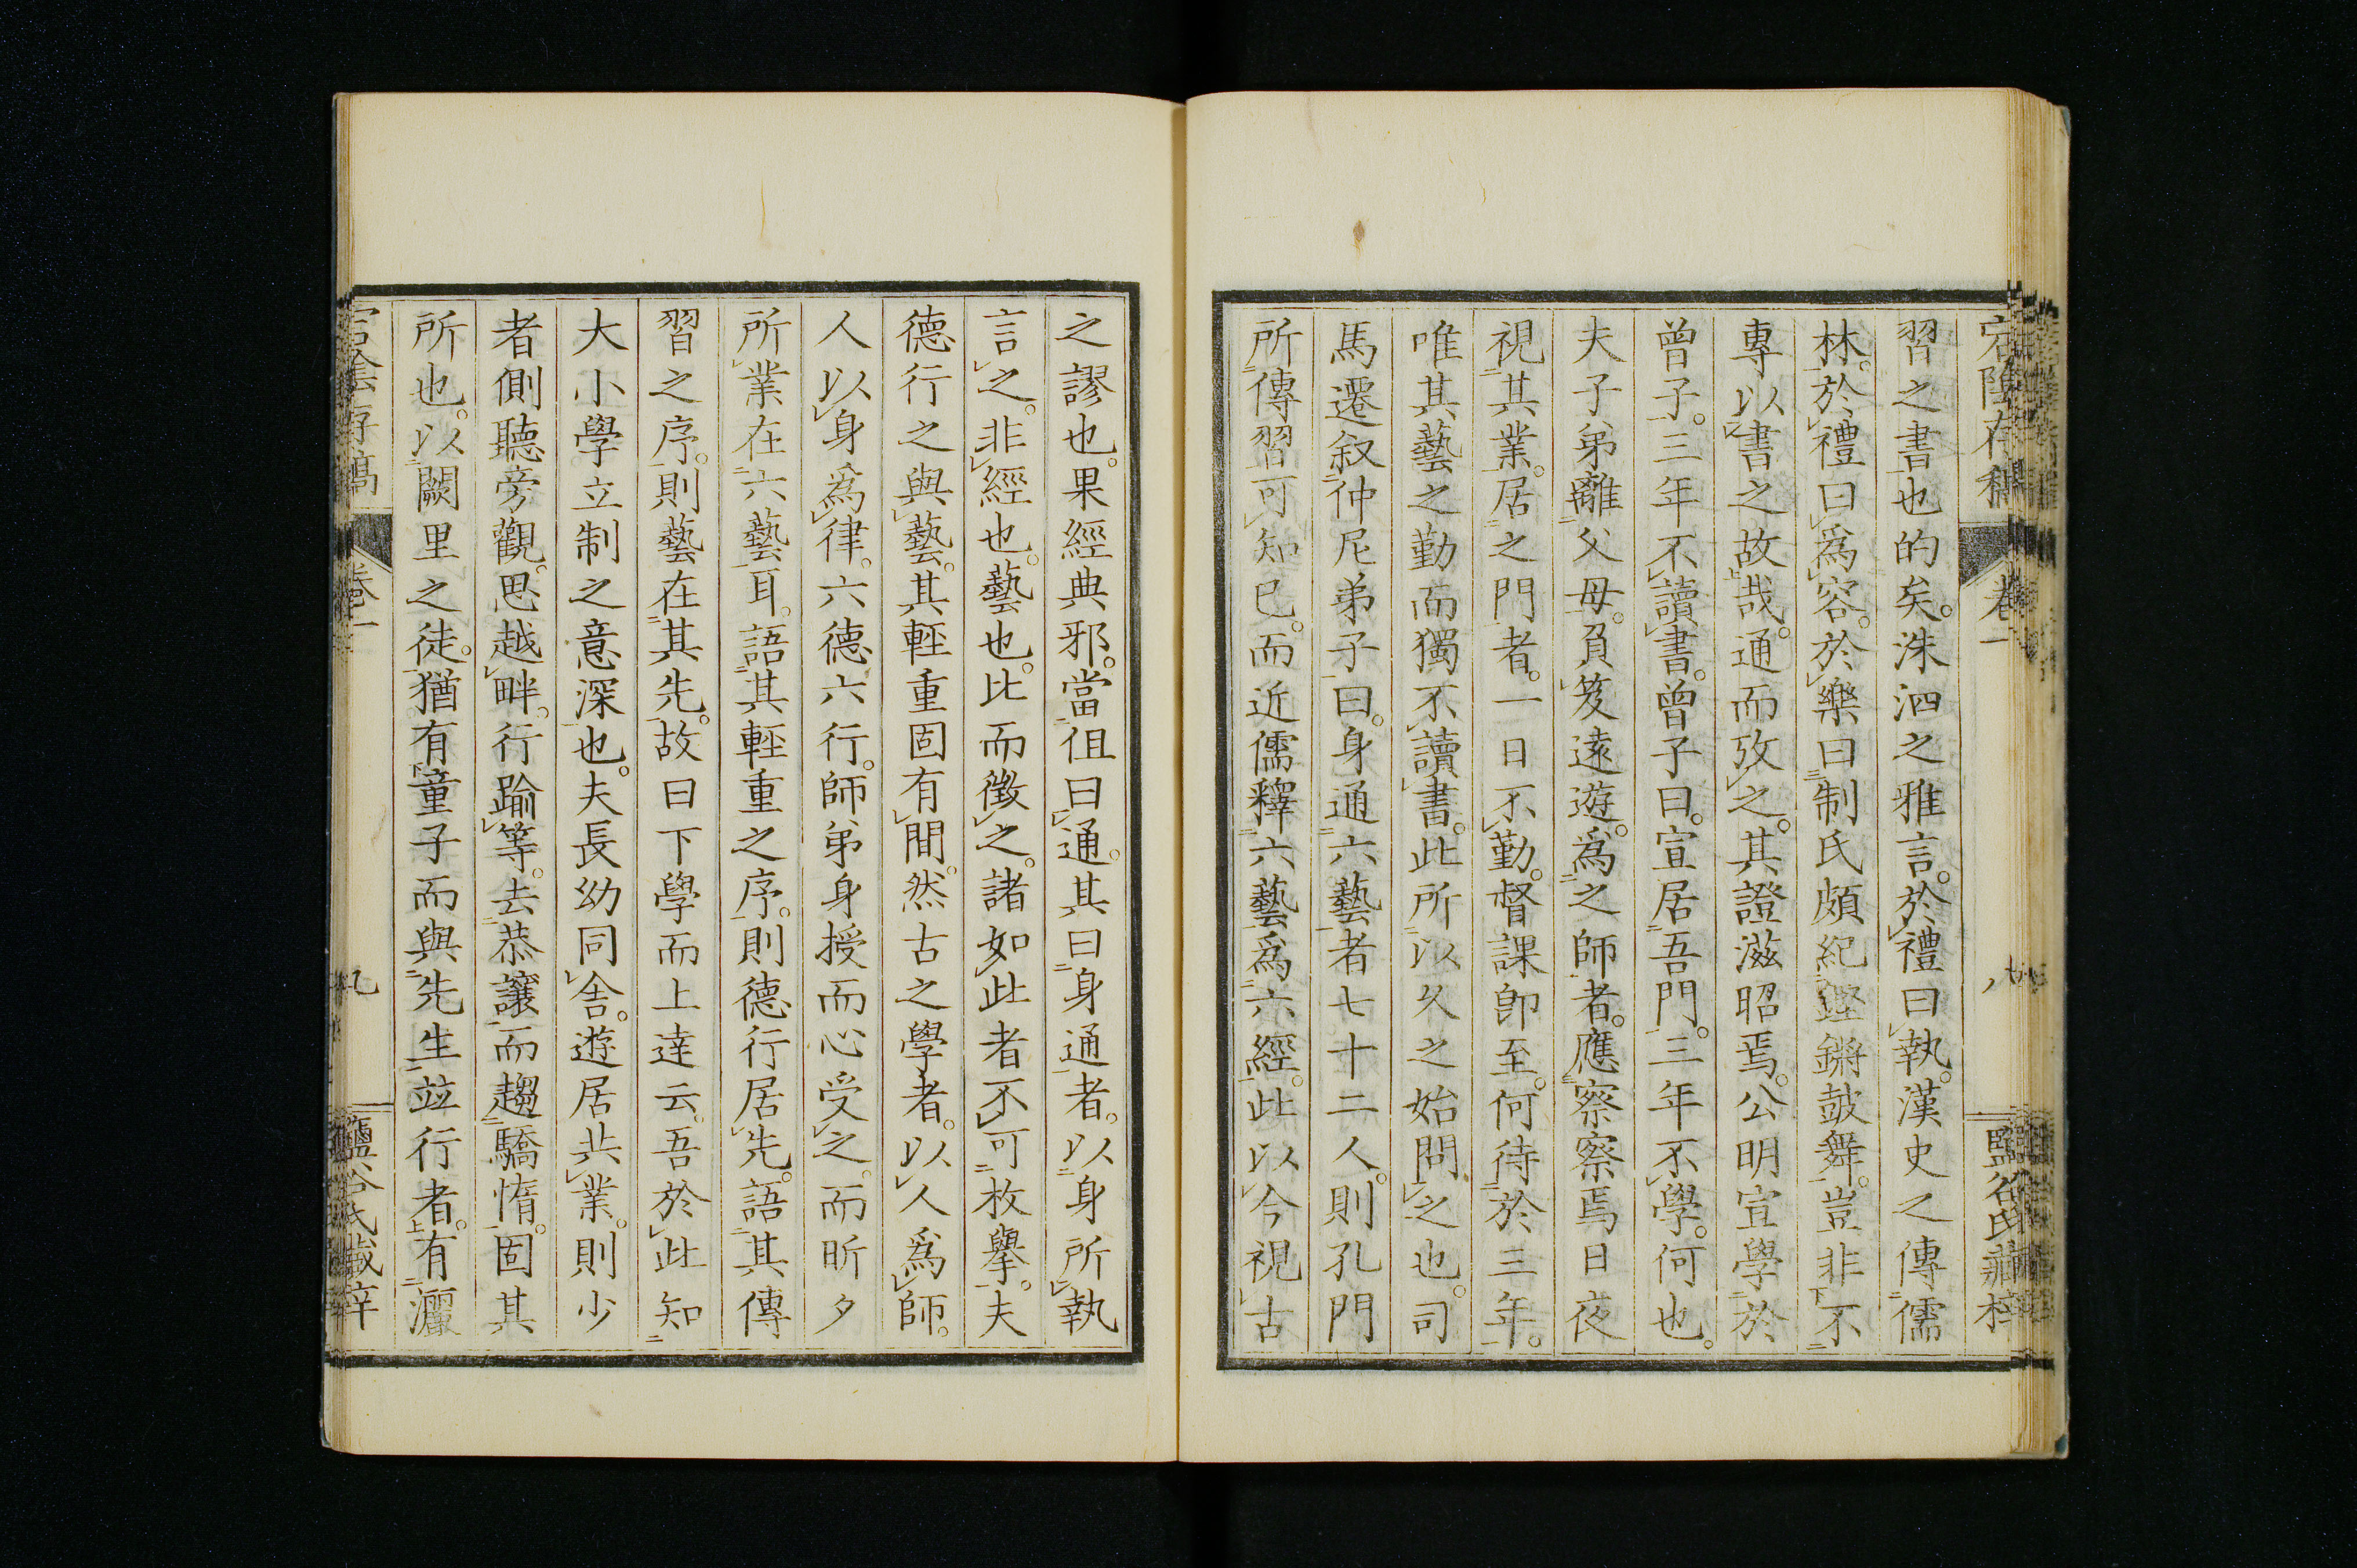 宕陰存稿 卷一 八 鹽谷氏藏梓
習之書也的矣。洙泗之雅言。於禮曰執。漢史之傳儒
林。於禮曰爲容。於樂曰制氏頗紀鏗鏘鼓舞。豈非不
專以書之故哉。通而攷之。其證滋昭焉。公明宣學於
曾子。三年不讀書。曾子曰。宣居吾門。三年不學。何也。
夫子弟離父母。負笈遠遊。爲之師者。應察察焉日夜
視其業。居之門者。一日不勤。督課卽至。何待於三年。
唯其藝之勤而獨不讀書。此所以久之始問之也。司
馬遷叙仲尼弟子曰。身通六藝者七十二人。則孔門
所傳習可知已。而近儒釋六藝爲六經。此以今視古
之謬也。果經典邪。當徂曰通。其曰身通者。以身所執
言之。非經也。藝也。比而徵之。諸如此者不可枚擧。夫
德行之與藝。其輕重固有間。然古之學者。以人爲師。
人以身爲律。六德六行。師弟身授而心受之。而昕夕
所業在六藝耳。語其輕重之序。則德行居先。語其傳
習之序。則藝在其先。故曰下學而上達云。吾於此知
大小學立制之意深也。夫長幼同舍。遊居共業。則少
者側聽旁觀。思越畔。行踰等。去恭讓而趨驕惰。固其
所也。以闕里之徒。猶有童子而與先生竝行者。有灑
宕陰存稿 卷一 九 鹽谷氏藏梓